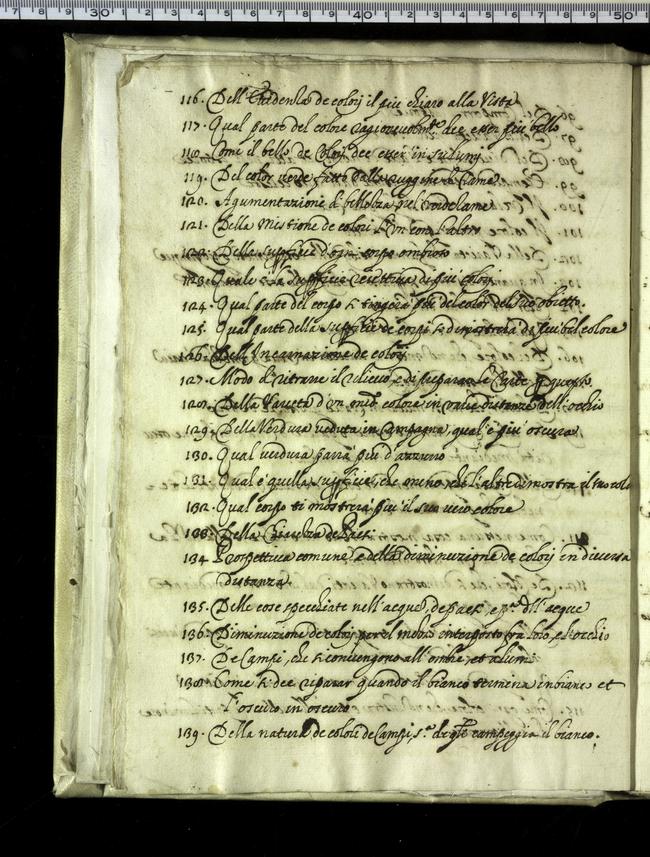 116. Dell'Evidenza de colori il piu chiaro alla Vista
117. Qual parte del colore ragionevolmte. dee esser piu bello
118. Come il bello de Colorj dee esser in su lumj
119. Del color verde fatto dalla ruggine di Rame
120. Agumentazione di bellezza nel verderame
121. Della Mistione de colori l'un con l'altro
122. Della suppficie d'ogni corpo ombroso
123. Quale è la suppficie recettiva di piu colori
124. Qual parte del corpo si tingerà piu del color del suo obietto.
125. Qual parte della suppficie de corpi si dimostrerà di piu bel colore
126. Dell'Incarnazione de colorj
127. Modo di ritrarre il rilievo, e di preparar le Carte p questo.
128. Della Varietà d'un med. colore in varie distanze dell'occhio
129. Della Verdura veduta in Campagna, qual'è piu oscura
130. Qual verdura parrà piu d'azzurro
131. Qual'è quella suppficie, che meno, che l'altre dimostra il suo colore
132. Qual corpo ti mostrerà piu il suo vero colore
133. Della Chiarezza de Paesi
134 Prospettiva comune, e della diminuzione de colorj in diversa
distanza
135. Delle cose specchiate nell'acque, de paesi, e pa. dell'acque
136. Diminuzione de colorj per il mezo interposto fra loro, e l'occhio
137. De Campi, che si convengono all'ombre, et a lumi
138. Come si dee riparar quando il bianco termina in bianco et
l'oscuro in oscuro
139. Della natura de colori de Campi, sa. de qli campeggia il bianco.
7 8 9 30 1 2 3 4 5 6 7 8 9 40 1 2 3 4 5 6 7 8 9 50